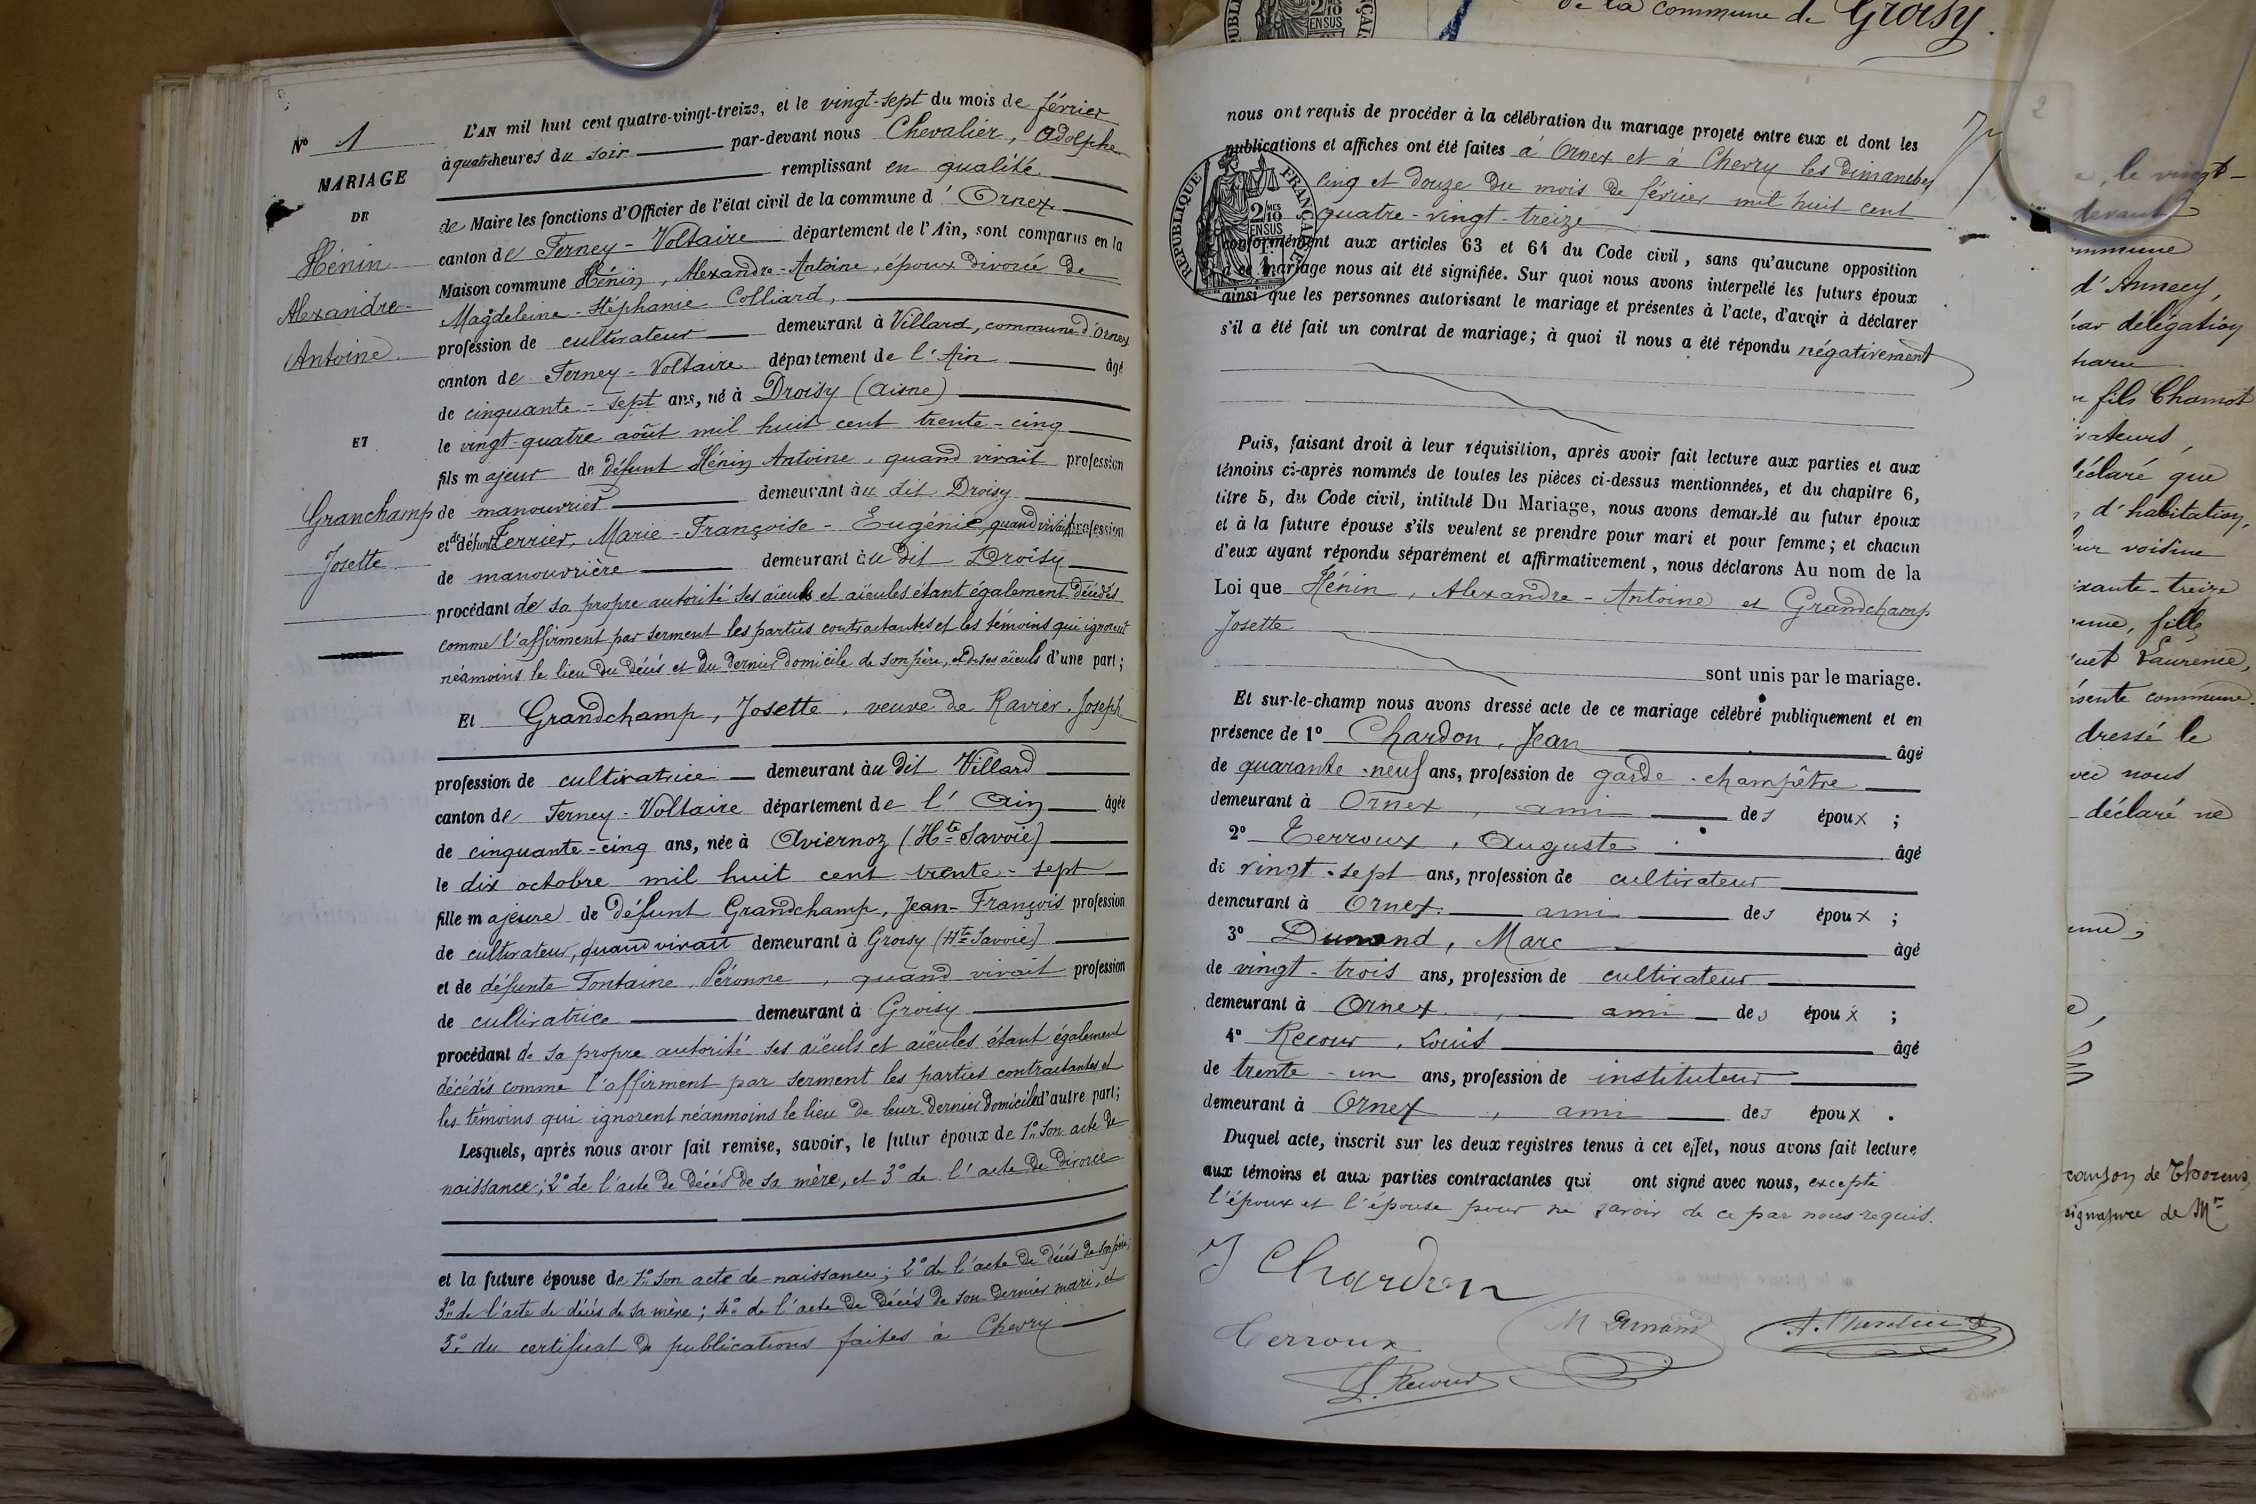 de la commune de Groisy.
N° 1
MARIAGE
DE
Hénin
Alexandre-
Antoine
ET
Granchamp
Josette
L'AN mil huit cent quatre-vingt-treize, et le vingt-sept du mois de février
à quatre heures du soir par-devant nous Chevalier, Adolphe
remplissant en qualité
de Maire les fonctions d'Officier de l'état civil de la commune d'Ornex
canton de Ferney-Voltaire département de l'Ain, sont comparus en la
Maison commune Hénin, Alexandre-Antoine, époux divorcé de
Magdeleine-Stéphanie Colliard,
profession de cultivateur demeurant à Villard, commune d'Ornex
canton de Ferney-Voltaire département de l'Ain âgé
de cinquante-sept ans, né à Droisy (Aisne)
le vingt-quatre août mil huit cent trente-cinq
fils majeur de défunt Hénin Antoine, quand vivait profession
de manouvrier demeurant au dit Droisy
et de défunte Ferrier, Marie-Françoise-Eugénie, quand vivait profession
de manouvrière demeurant au dit Droisy
procédant de sa propre autorité ses aïeuls et aïeules étant également décédés
comme l'affirment par serment les parties contractantes et les témoins qui ignorent
néamoins le lieu du décés et du dernier domicile de son père, et de ses aïeuls d'une part;
Et Grandchamp, Josette, veuve de Ravier, Joseph
profession de cultivatrice demeurant au dit Villard
canton de Ferney-Voltaire département de l'Ain âgée
de cinquante-cinq ans, née à Aviernoz (Hte Savoie)
le dix octobre mil huit cent trente-sept
fille majeure de défunt Grandchamp, Jean-François profession
de cultivateur, quand vivait demeurant à Groisy (Hte Savoie)
et de défunte Fontaine, Péronne, quand vivait profession
de cultivatrice demeurant à Groisy
procédant de sa propre autorité ses aïeuls et aïeules étant également
décédés comme l'affirment par serment les parties contractantes et
les témoins qui ignorent néanmoins le lieu de leur dernier domicile d'autre part;
Lesquels, après nous avoir fait remise, savoir, le futur époux de 1° son acte de
naissance; 2° de l'acte de décés de sa mère, et 3° de l'acte de divorce
et la future épouse de 1° son acte de naissance; 2° de l'acte de décés de son père;
3° de l'acte de décés de sa mère; 4° de l'acte de décés de son dernier mari, et
5° du certificat de publications faites à Chevry
nous ont requis de procéder à la célébration du mariage projeté entre eux et dont les
publications et affiches ont été faites à Ornex et à Chevry les dimanches
cinq et douze du mois de février mil huit cent
quatre-vingt-treize
conformément aux articles 63 et 64 du Code civil, sans qu'aucune opposition
à ce mariage nous ait été signifiée. Sur quoi nous avons interpellé les futurs époux
ainsi que les personnes autorisant le mariage et présentes à l'acte, d'avoir à déclarer
s'il a été fait un contrat de mariage; à quoi il nous a été répondu négativement
RÉPUBLIQUE FRANÇAISE
2/10 EN SUS
Puis, faisant droit à leur réquisition, après avoir fait lecture aux parties et aux
témoins ci-après nommés de toutes les pièces ci-dessus mentionnées, et du chapitre 6,
titre 5, du Code civil, intitulé Du Mariage, nous avons demandé au futur époux
et à la future épouse s'ils veulent se prendre pour mari et pour femme; et chacun
d'eux ayant répondu séparément et affirmativement, nous déclarons Au nom de la
Loi que Hénin, Alexandre-Antoine et Grandchamp
Josette
sont unis par le mariage.
Et sur-le-champ nous avons dressé acte de ce mariage célébré publiquement et en
présence de 1° Chardon, Jean âgé
de quarante-neuf ans, profession de garde-champêtre
demeurant à Ornex, ami des époux ;
2° Terroux, Auguste âgé
de vingt-sept ans, profession de cultivateur
demeurant à Ornex. ami des époux ;
3° Dunand, Marc âgé
de vingt-trois ans, profession de cultivateur
demeurant à Ornex, ami des époux ;
4° Recour, Louis âgé
de trente-un ans, profession de instituteur
demeurant à Ornex, ami des époux .
Duquel acte, inscrit sur les deux registres tenus à cet effet, nous avons fait lecture
aux témoins et aux parties contractantes qui ont signé avec nous, excepté
l'époux et l'épouse pour ne savoir de ce par nous requis.
J Chardon
Terroux
M Dunand
A. Chevalier
L. Recour
2
e, le vingt-
devant
mmune
d'Annecy,
par délégation
fils Chamot
déclaré que
d'habitation,
voisine
ixante-treize
fille
Laurence,
ésente commune.
dressé le
vec nous
déclaré ne
canton de Thorens,
signature de Mr